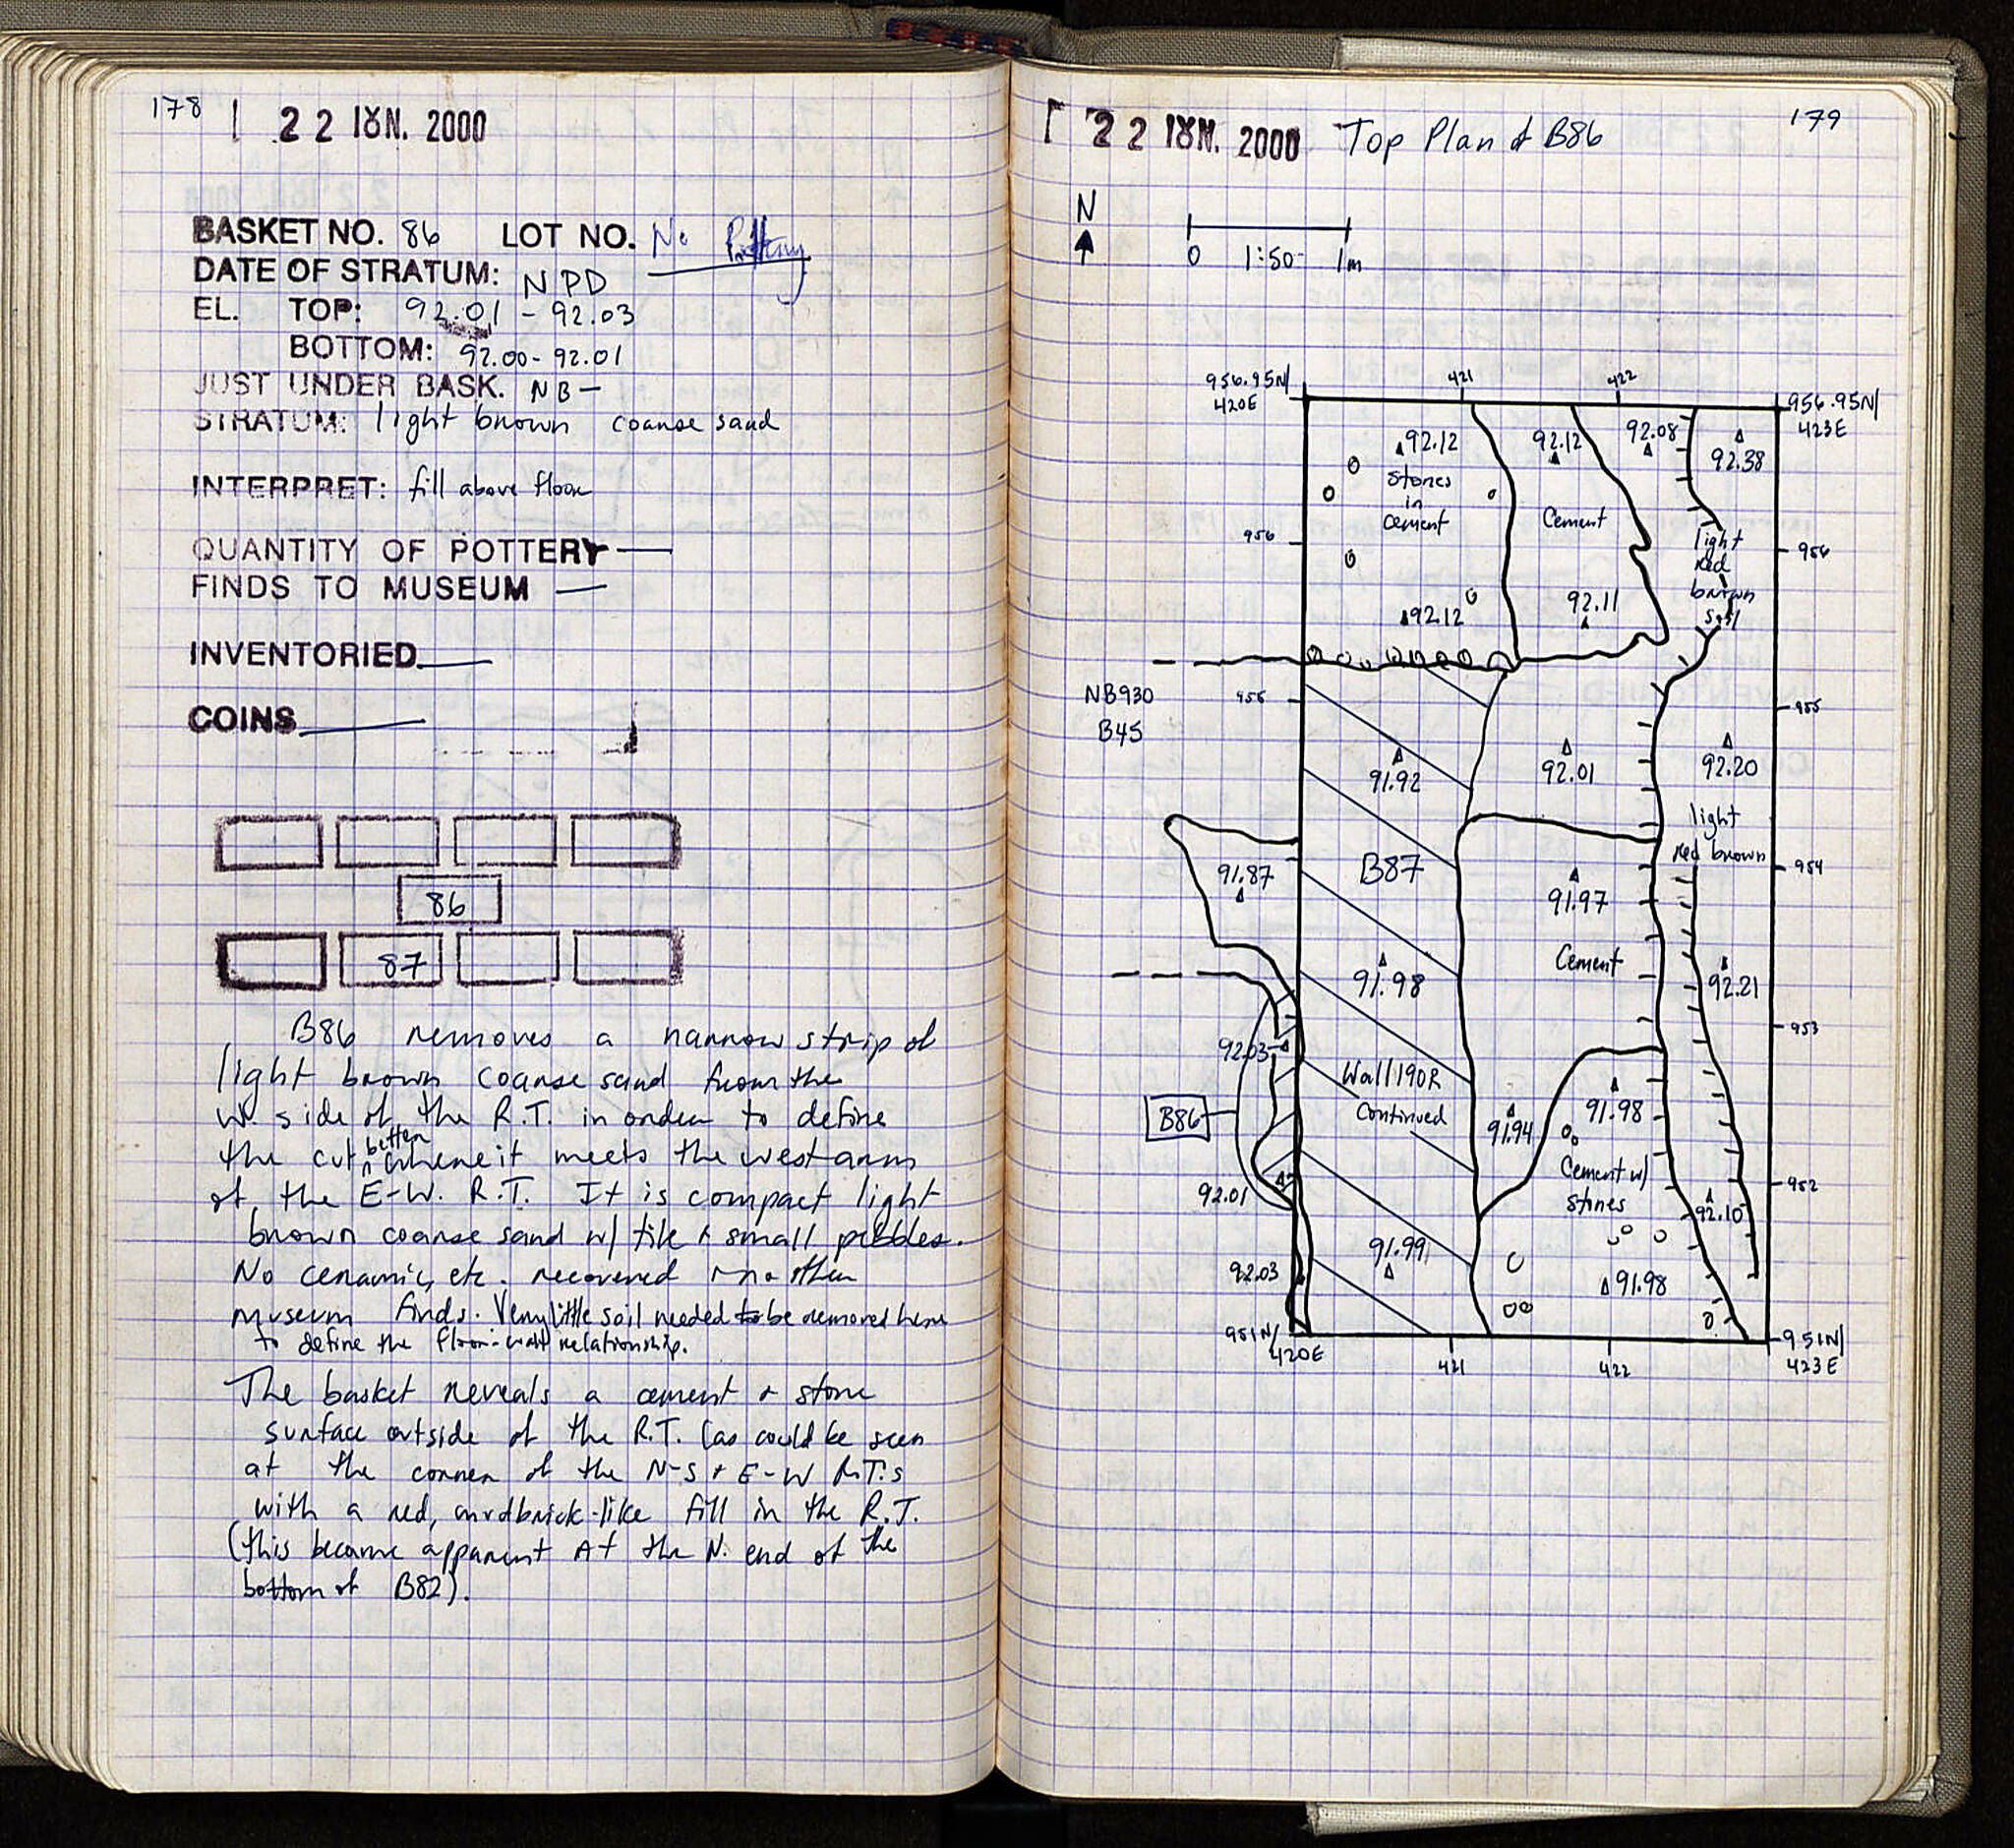 178
22 ΙΟΥΝ. 2000
BASKET NO. 86 LOT NO. No Pottery
DATE OF STRATUM: NPD
EL. TOP: 92.01 - 92.03
BOTTOM: 92.00 - 92.01
JUST UNDER BASK. NB —
STRATUM: light brown coarse sand
INTERPRET: fill above floor
QUANTITY OF POTTERY —
FINDS TO MUSEUM —
INVENTORIED —
COINS —
86
87
B86 removes a narrow strip of
light brown coarse sand from the
W. side of the R.T. in order to define
the cut better where it meets the west arm
of the E-W. R.T. It is compact light
brown coarse sand w/ tile & small pebbles.
No ceramic, etc. recovered no other
museum finds. Very little soil needed to be removed here
to define the floor-wall relationship.
The basket reveals a cement & stone
surface outside of the R.T. (as could be seen
at the corner of the N-S + E-W R.T.s
with a red, mudbrick-like fill in the R.T.
(this became apparent At the N. end of the
bottom of B82).
22 ΙΟΥΝ. 2000 Top Plan of B86
179
N
0 1:50 1m
956.95N/
420E
421
422
956.95N/
423E
92.12
92.12
92.08
92.38
stones
in
cement
Cement
956
light
red
brown
soil
956
92.12
92.11
NB930
B45
955
955
91.92
92.01
92.20
light
red brown
91.87
B87
91.97
954
91.98
Cement
92.21
953
92.03
Wall 190R
Continued
B86
91.94
91.98
Cement w/
stones
952
92.01
92.10
91.99
92.03
91.98
951N/
420E
421
422
951N/
423E